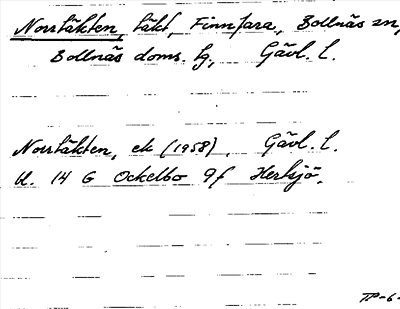 Norrtäkten, täkt, Finnfara, Bollnäs sn,
Bollnäs doms. tg, Gävl. l.
Norrtäkten, ek (1958), Gävl. l.
bl. 14 G Ockelbo 9f Herksjö.
TP-6-